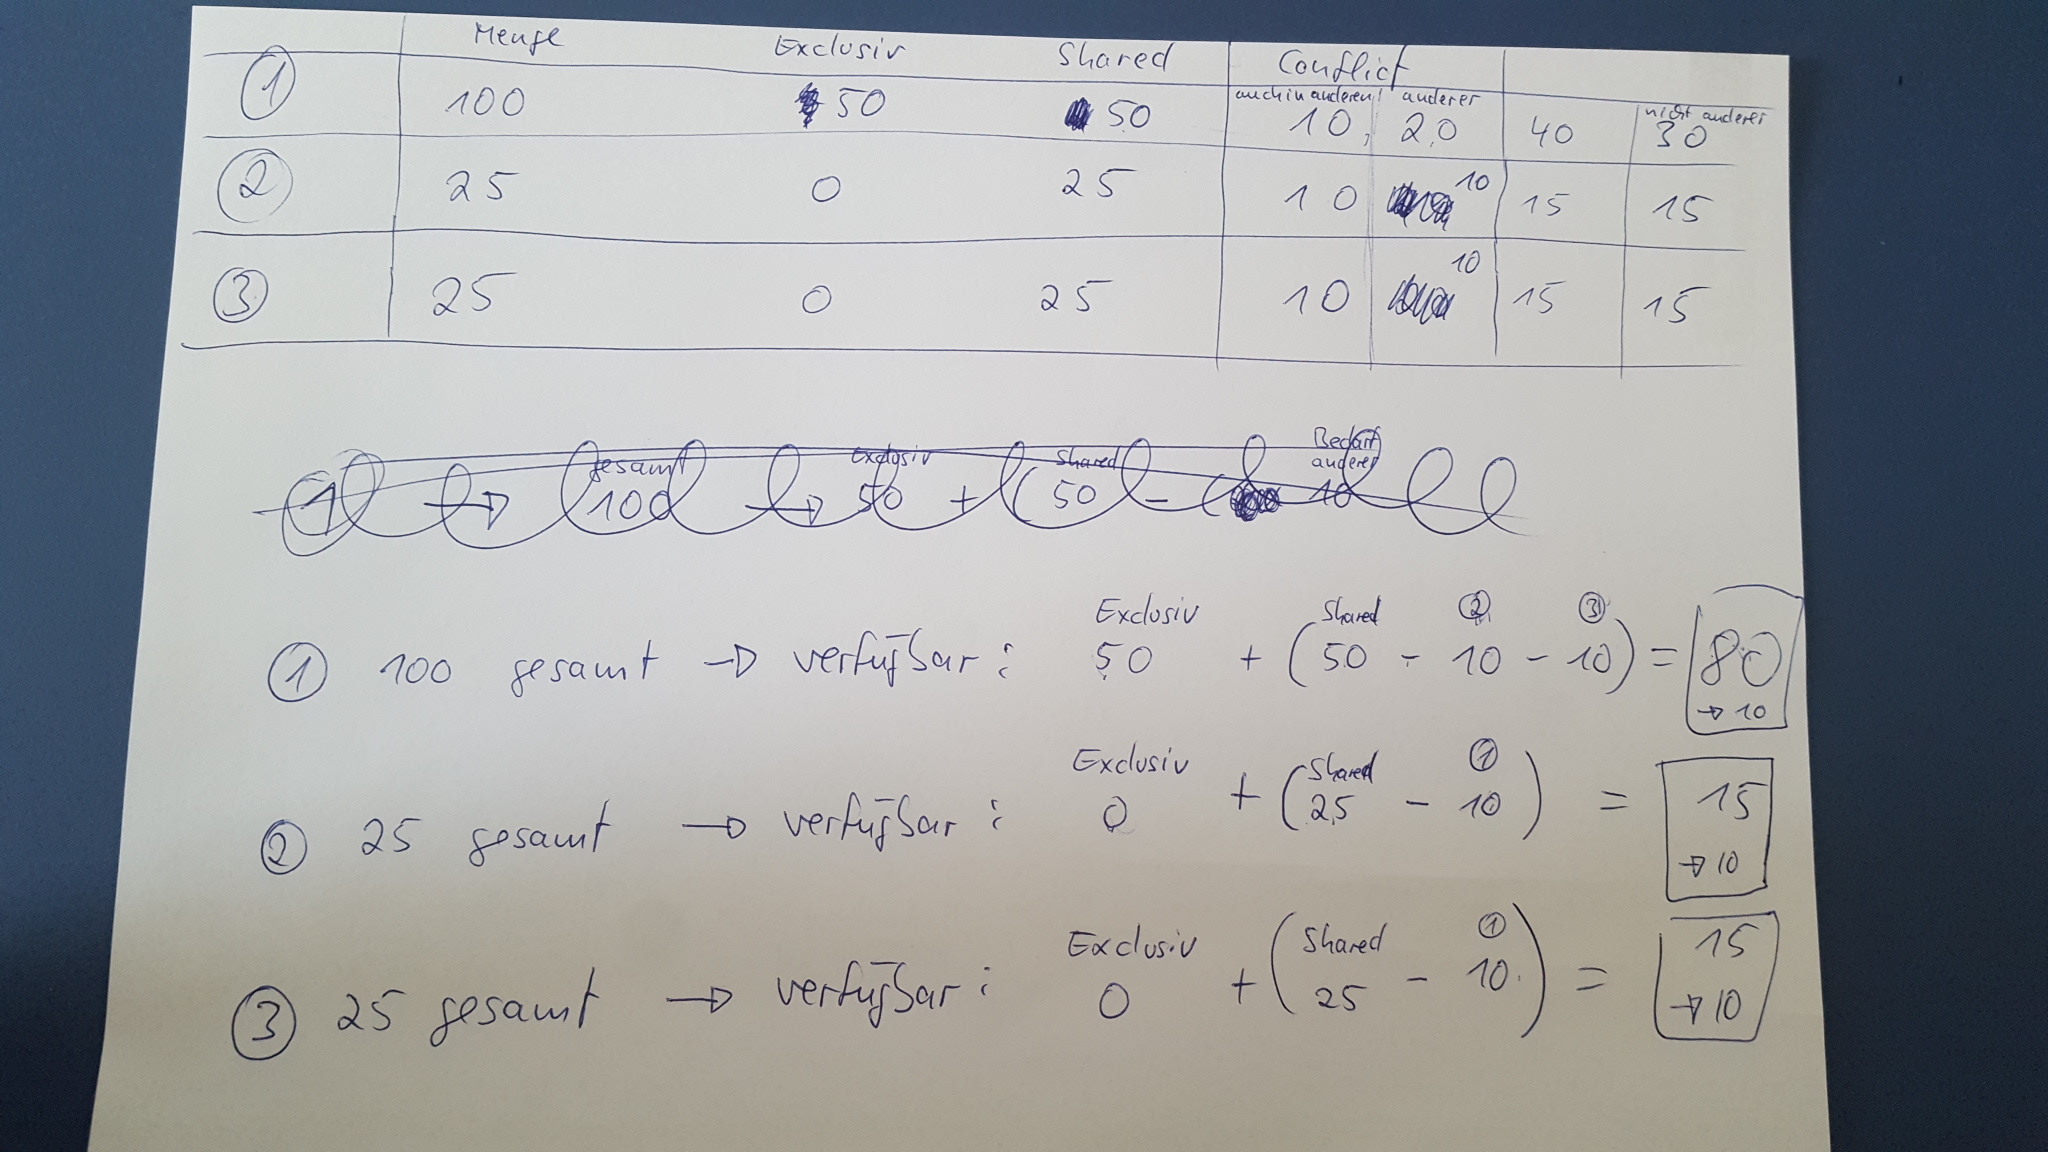 Menge Exclusiv Shared Conflict
auch in anderen anderer nicht anderer
① 100 50 50 10, 20 40 30
② 25 0 25 10 10 15 15
③ 25 0 25 10 10 15 15
gesamt Exclusiv Shared Bedarf anderer
1 → 100 → 50 + (50 - ( 10
Exclusiv Shared ② ③
① 100 gesamt → verfügbar: 50 + (50 - 10 - 10) = 80
→ 10
Exclusiv Shared ①
② 25 gesamt → verfügbar: 0 + (25 - 10) = 15
→ 10
Exclusiv Shared ①
③ 25 gesamt → verfügbar: 0 + (25 - 10) = 15
→ 10